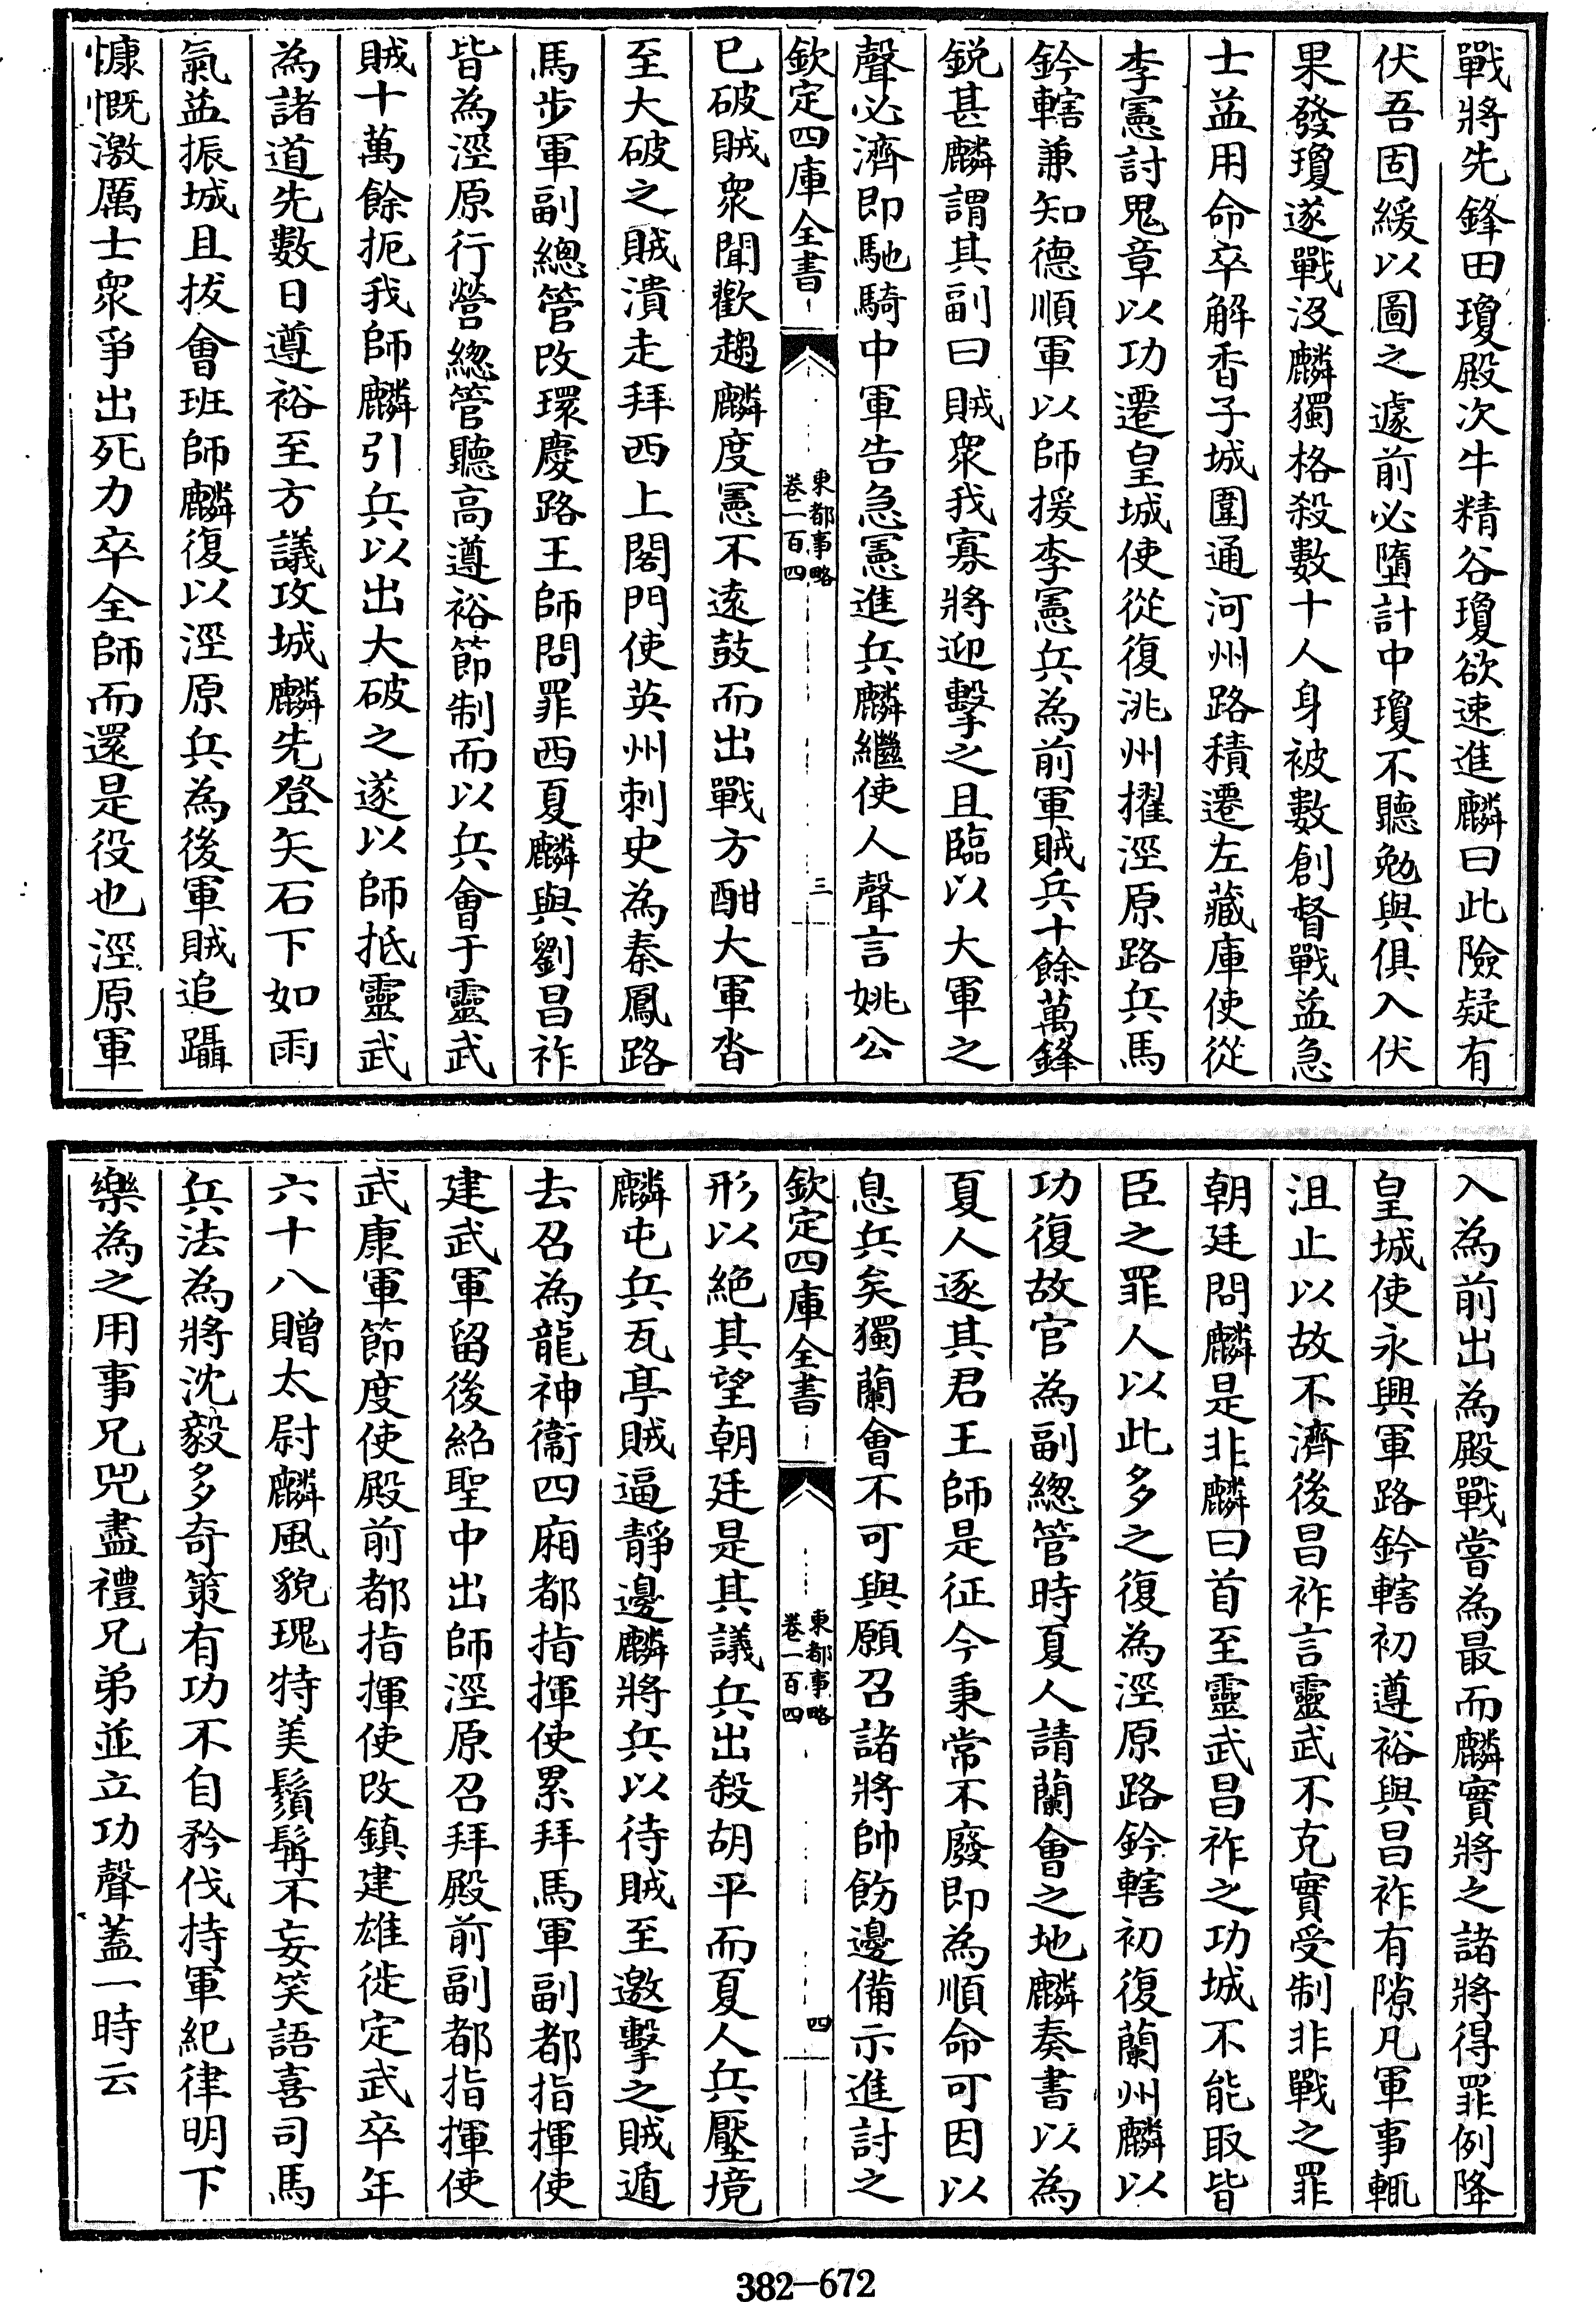 戰將先鋒田瓊殿次牛精谷瓊欲速進麟曰此險疑有
伏吾固緩以圖之遽前必墮計中瓊不聽勉與俱入伏
果發瓊遂戰没麟獨格殺數十人身被數創督戰益急
士益用命卒解香子城圍通河州路積遷左藏庫使從
李憲討鬼章以功遷皇城使從復洮州擢涇原路兵馬
鈐轄兼知德順軍以師援李憲兵為前軍賊兵十餘萬鋒
鋭甚麟謂其副曰賊衆我寡將迎擊之且臨以大軍之
聲必濟即馳騎中軍告急憲進兵麟繼使人聲言姚公
欽定四庫全書
東都事略
卷一百四
三
已破賊衆聞歡趨麟度憲不遠鼓而出戰方酣大軍沓
至大破之賊潰走拜西上閤門使英州刺史為秦鳳路
馬步軍副總管改環慶路王師問罪西夏麟與劉昌祚
皆為涇原行營總管聽高遵裕節制而以兵會于靈武
賊十萬餘扼我師麟引兵以出大破之遂以師抵靈武
為諸道先數日遵裕至方議攻城麟先登矢石下如雨
氣益振城且拔會班師麟復以涇原兵為後軍賊追躡
慷慨激厲士衆爭出死力卒全師而還是役也涇原軍
入為前出為殿戰嘗為最而麟實將之諸將得罪例降
皇城使永興軍路鈐轄初遵裕與昌祚有隙凡軍事輒
沮止以故不濟後昌祚言靈武不克實受制非戰之罪
朝廷問麟是非麟曰首至靈武昌祚之功城不能取皆
臣之罪人以此多之復為涇原路鈐轄初復蘭州麟以
功復故官為副總管時夏人請蘭會之地麟奏書以為
夏人逐其君王師是征今秉常不廢即為順命可因以
息兵矣獨蘭會不可與願召諸將帥飭邊備示進討之
欽定四庫全書
東都事略
卷一百四
四
形以絕其望朝廷是其議兵出殺胡平而夏人兵壓境
麟屯兵瓦亭賊逼靜邊麟將兵以待賊至邀擊之賊遁
去召為龍神衞四廂都指揮使累拜馬軍副都指揮使
建武軍留後紹聖中出師涇原召拜殿前副都指揮使
武康軍節度使殿前都指揮使改鎮建雄徙定武卒年
六十八贈太尉麟風貌瑰特美鬚髯不妄笑語喜司馬
兵法為將沈毅多奇策有功不自矜伐持軍紀律明下
樂為之用事兄兕盡禮兄弟並立功聲蓋一時云
382-672